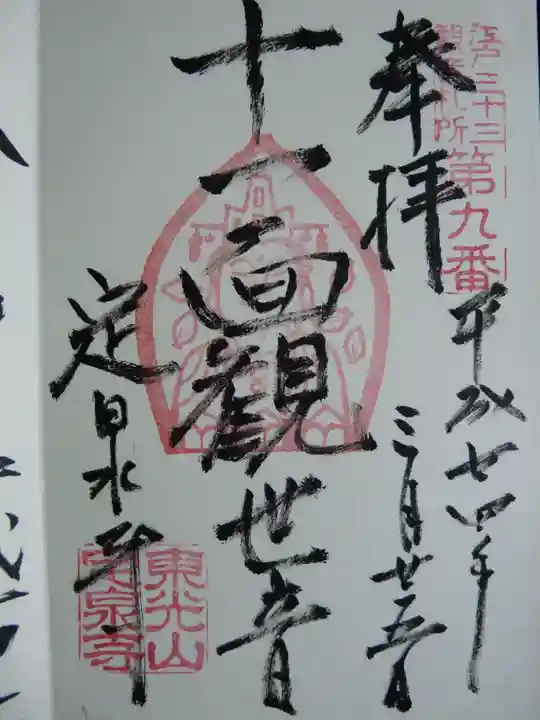 江戸三十三
観音札所
第九番
奉拝
平成廿四年
三月廿五日
十一面観世音
定泉寺
東光山
定泉寺